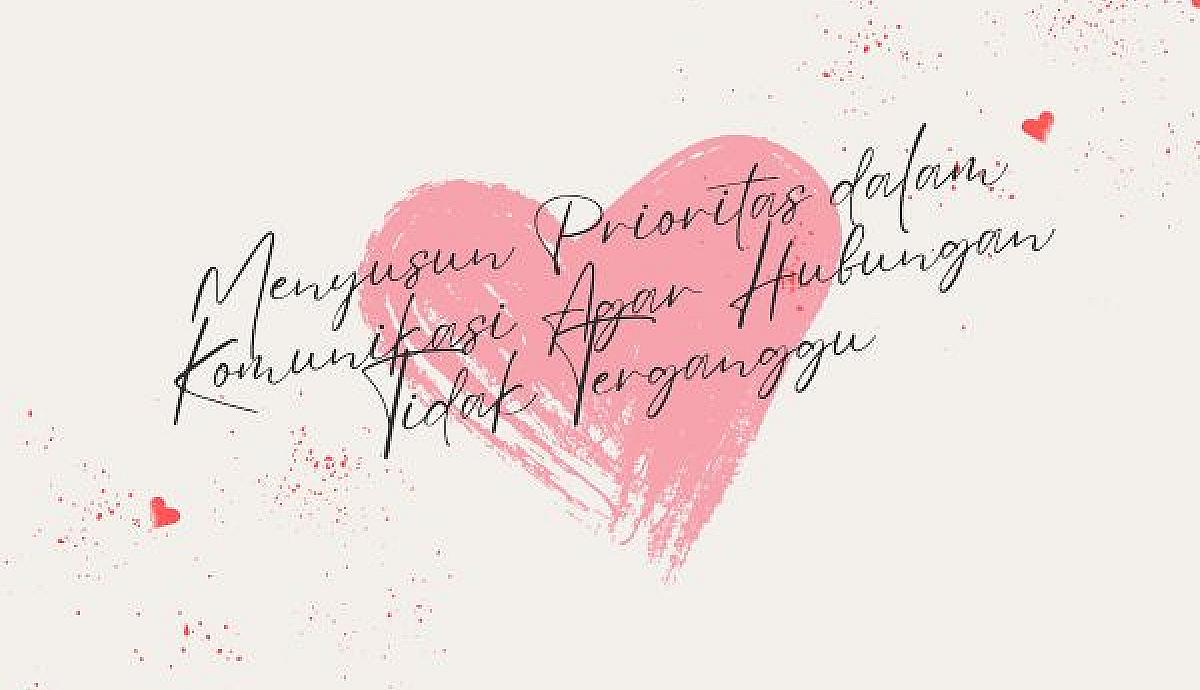 Menyusun Prioritas dalam
Komunikasi Agar Hubungan
Tidak Terganggu